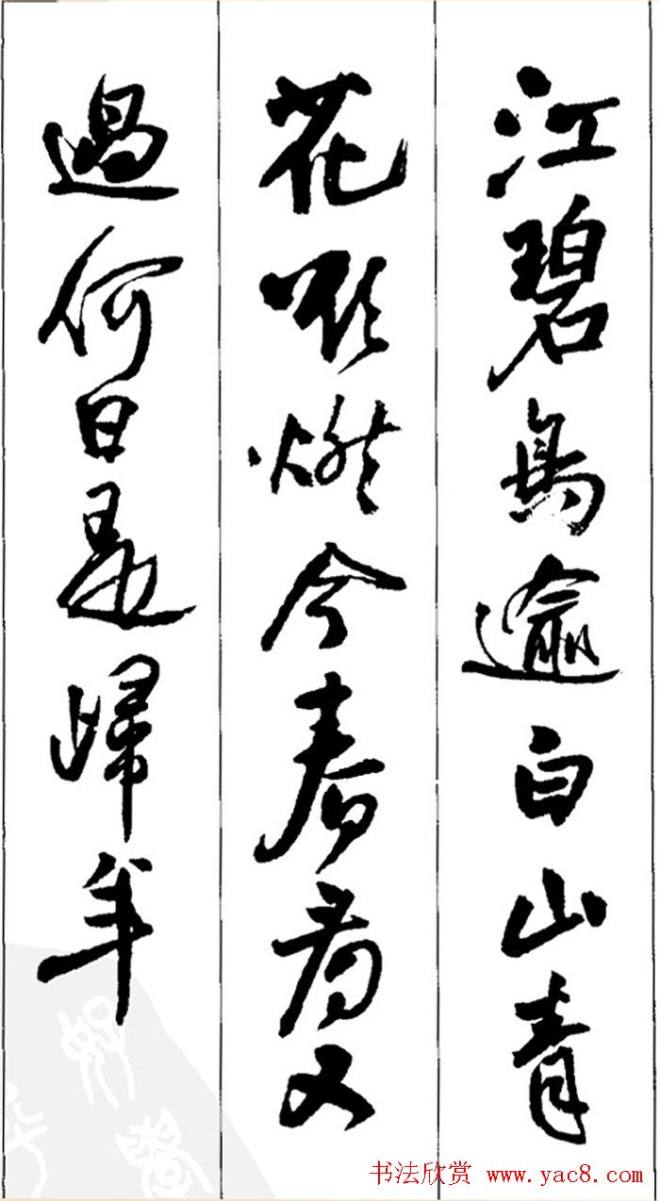 江碧鳥逾白山青
花欲燃今春看又
過何日是歸年
书法欣赏 www.yac8.com